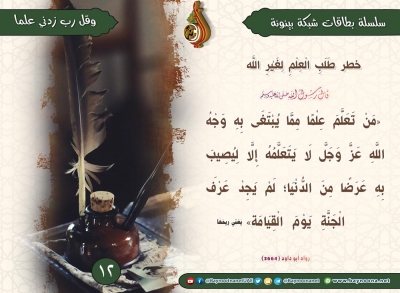 سلسلة بطاقات شبكة بينونة
وقل رب زدني علما
خطر طلب العلم لغير الله
قال رسول الله صلى الله عليه وسلم
«مَنْ تَعَلَّمَ عِلْمًا مِمَّا يُبْتَغَى بِهِ وَجْهُ
اللهِ عَزَّ وَجَلَّ لَا يَتَعَلَّمُهُ إِلَّا لِيُصِيبَ
بِهِ عَرَضًا مِنَ الدُّنْيَا؛ لَمْ يَجِدْ عَرْفَ
الْجَنَّةِ يَوْمَ الْقِيَامَةِ» يعني ريحها
رواه أبو داود (3664)
١٢
@Baynoonanet
www.baynoona.net